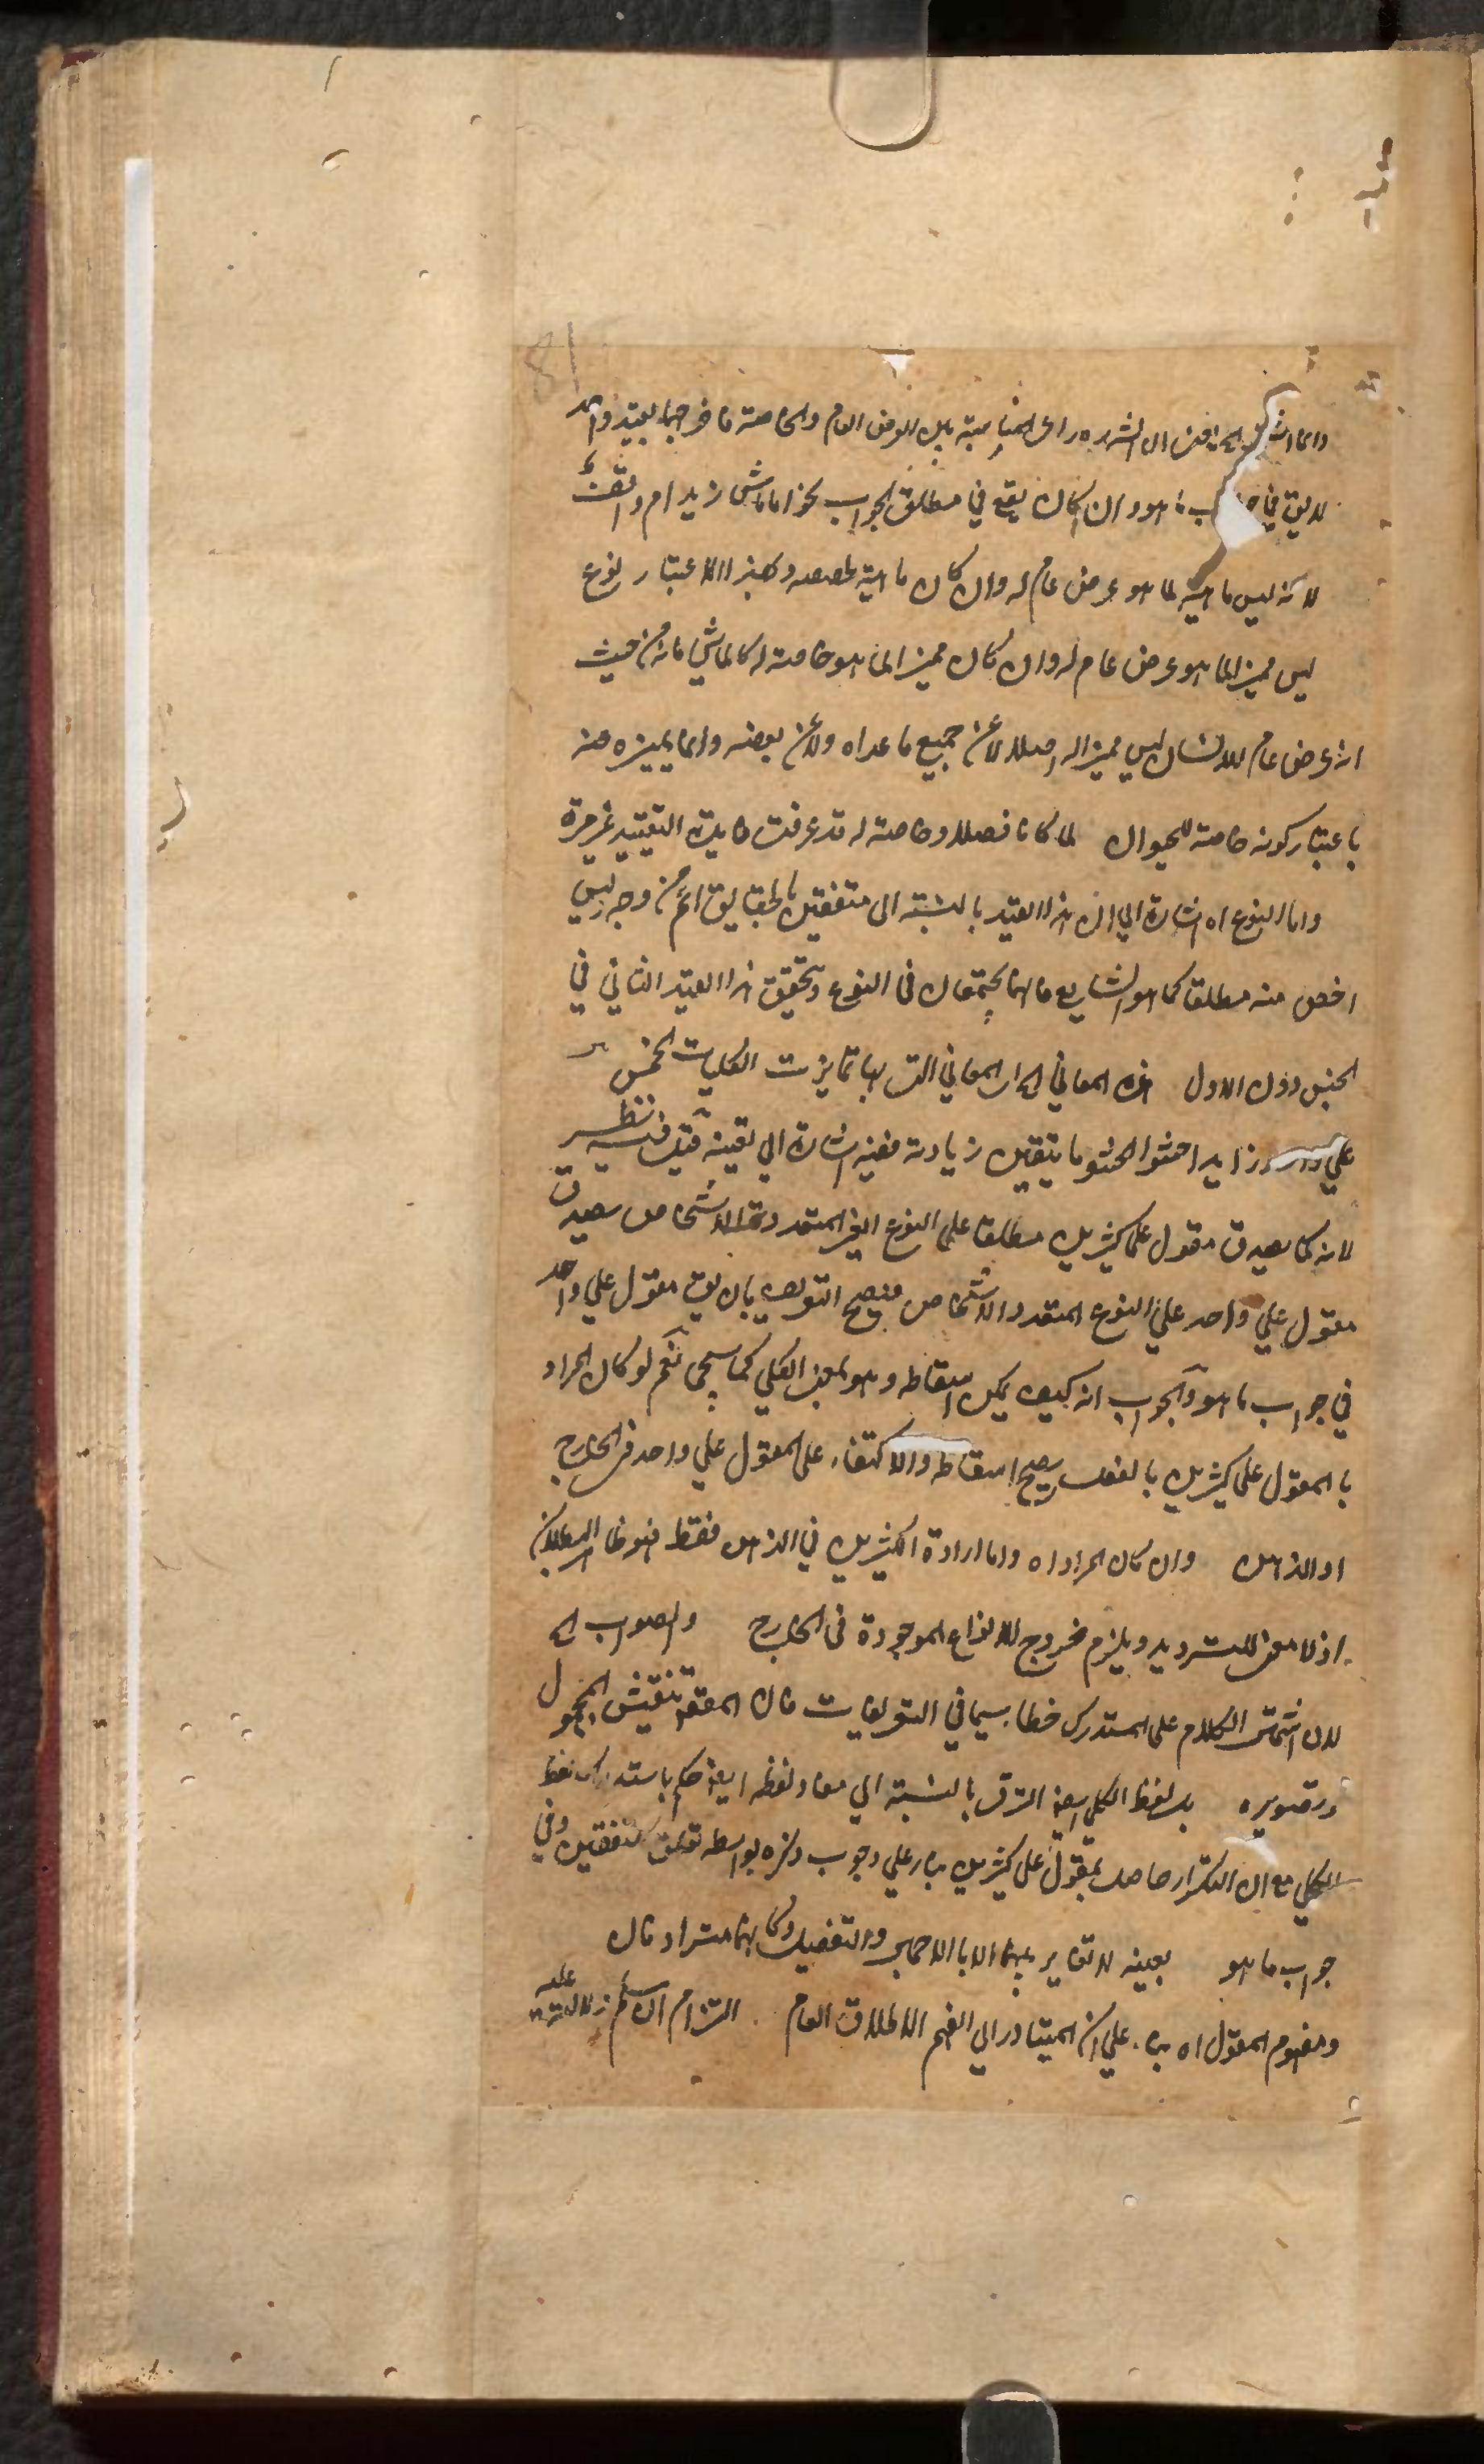 وانما الشارحين الى انه راعى المناسبة بين العرض العام والخاصة فاخرجهما بقيد واحد
لا يق في جواب ما هو وان كان يقع في مطلق الجواب نحو اماش زيد ام واقف
لانه ليس ماهية لما هو عرض عام له وان كان ماهية لحصصه وبهذا الاعتبار نوع
ليس مميزا لما هو عرض عام له وان كان مميزا لما هو خاصة له كالماشي فانه من حيث
انه عرض عام للانسان ليس مميزا له اصلا لا عن جميع ما عداه ولا عن بعضه وانما يميزه عنه
باعتبار كونه خاصة للحيوان لما كانا فصلا وخاصة له قد عرفت فايدة التقييد غير مرة
واما النوع اه اشارة الى ان هذا القيد بالنسبة الى متفقين بالحقايق اعم من وجه ليس
اخص منه مطلقا كما هو الشايع فانهما يجتمعان في النوع وتحقق هذا القيد الثاني في
الجنس دون الاول هذه المعاني اي المعاني التي بها تمايزت الكليات الخمس
على زايد احشوا الحشو ما يتعين زيادته ففيه اشارة الى تعينه قيل فيه نظر
لانه كما يصدق مقول على كثيرين مطلقا على النوع الغير المتعدد الاشخاص يصدق
مقول على واحد على النوع المتعدد الاشخاص فيصح التعريف بان يق مقول على واحد
في جواب ما هو والجواب انه كيف يمكن اسقاطه وهو بمعنى الكلي كما سيجئ نعم لو كان المراد
بالمقول على كثيرين بالفعل يصح اسقاطه والاكتفاء على المقول على واحد في الخارج
او الذهن وان كان المراد اه واما ارادة الكثيرين في الذهن فقط فهو ظاهر البطلان
اذ لا معنى للترديد ويلزم خروج الانواع الموجودة في الخارج والصواب اه
لان اشتمال الكلام على المستدرك خطا سيما في التعريفات فان المقصود تنقيش المجهول
وتصويره بل لفظ الكلي ايضا الترقي بالنسبة الى مفاد لفظه ايضا حكم باستدراك لفظ
الكلي مع ان التكرار حاصل بمقول على كثيرين بناء على وجوب ذكره بواسطة تعلق متفقين وفي
جواب ما هو بعينه لا تغاير بينهما الا بالاجمال والتفصيل وكانهما مترادفان
ومفهوم المقول اه بناء على ان المتبادر الى الفهم الاطلاق العام التزام